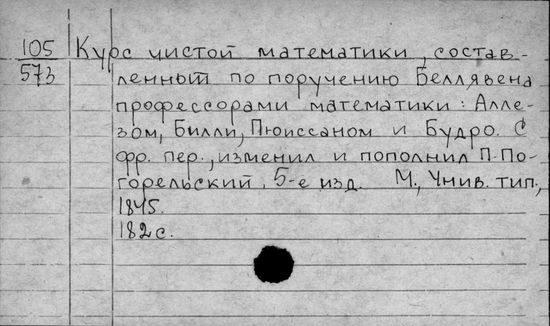 105 Курс чистой математики, состав-
573 ленный по поручению Беллявена
профессорами математики: Алле-
зом, Билли, Пюиссаном и Будро. С
фр. пер., изменил и пополнил П. По-
горельский. 5-е изд. М., Унив. тип.,
1845.
182 с.